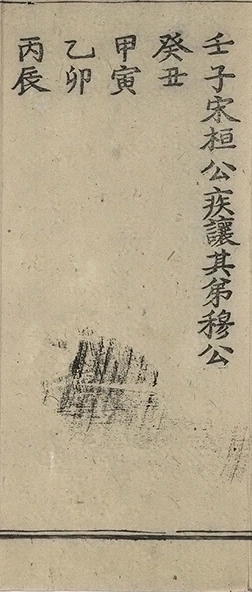 壬子宋桓公疾讓其弟穆公
癸丑
甲寅
乙卯
丙辰